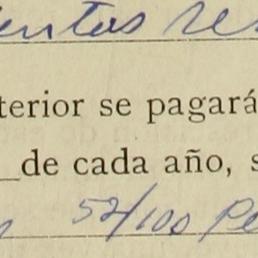 terior se pagará
de cada año, s
52/100 Pe